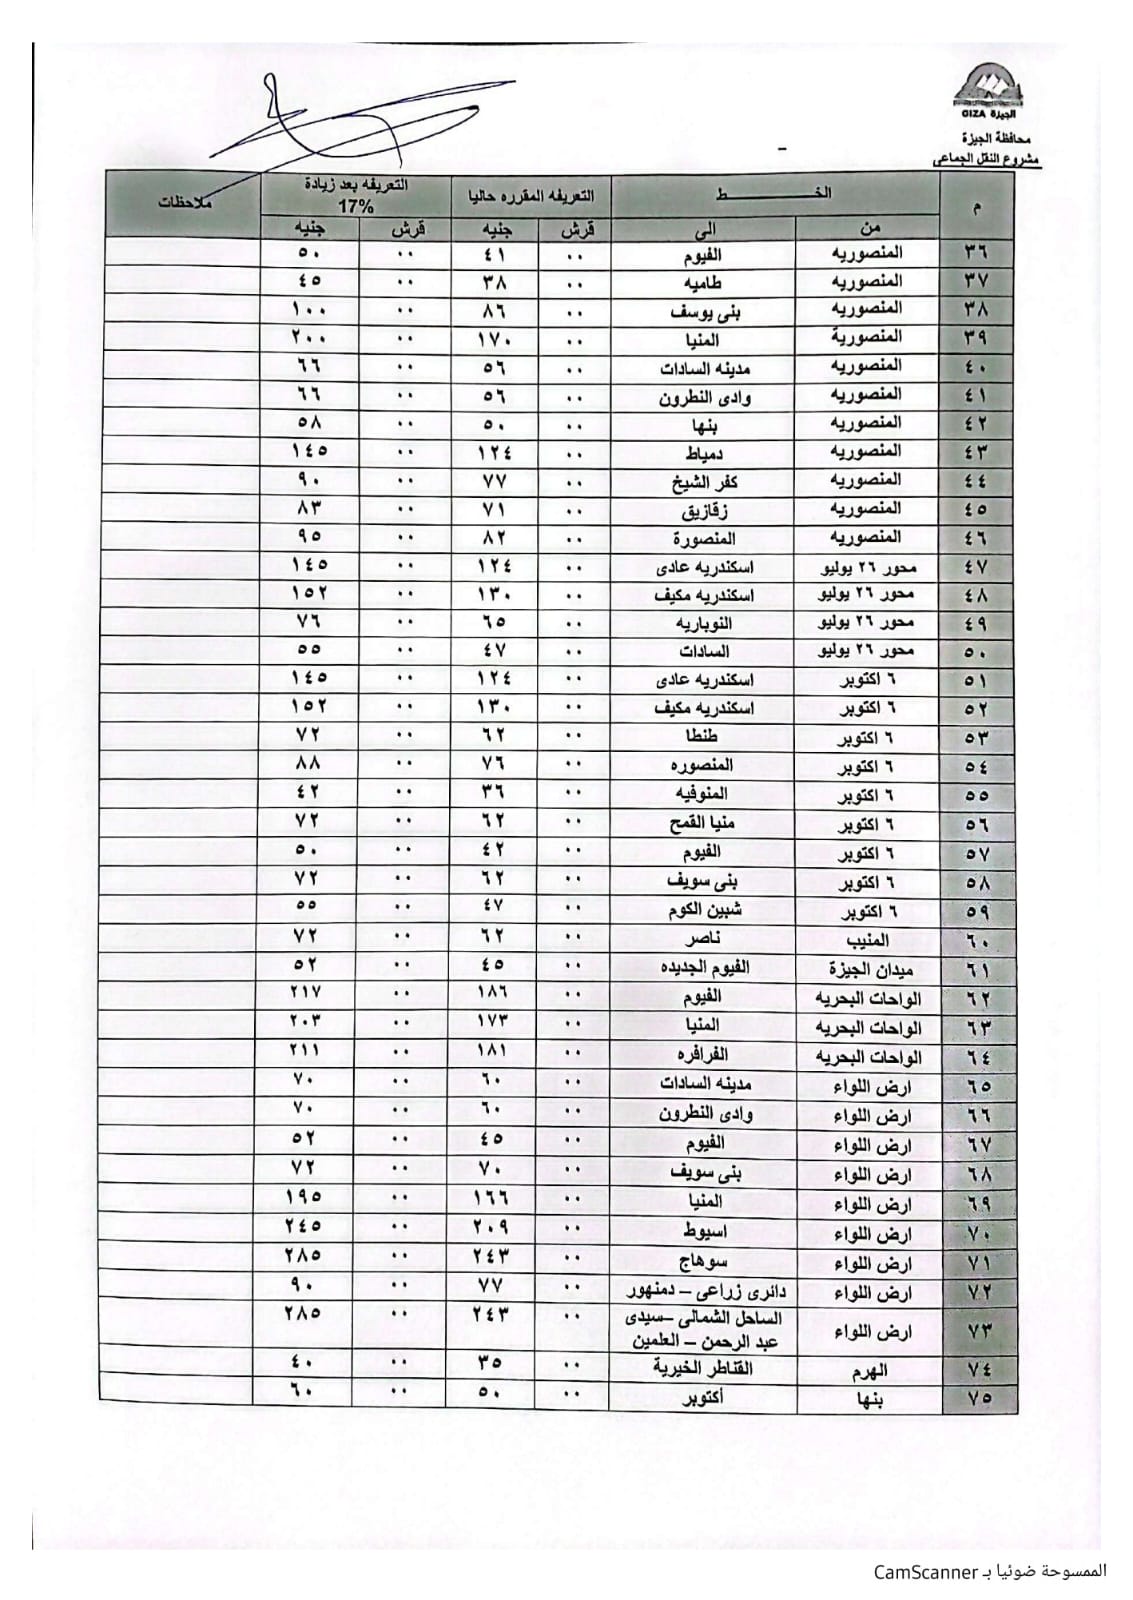 الجيزة GIZA
محافظة الجيزة
مشروع النقل الجماعى
م الخــــــــط التعريفه المقرره حاليا التعريفه بعد زيادة 17% ملاحظات
من الى قرش جنيه قرش جنيه
٣٦ المنصوريه الفيوم ٠٠ ٤١ ٠٠ ٥٠
٣٧ المنصوريه طاميه ٠٠ ٣٨ ٠٠ ٤٥
٣٨ المنصوريه بنى يوسف ٠٠ ٨٦ ٠٠ ١٠٠
٣٩ المنصورية المنيا ٠٠ ١٧٠ ٠٠ ٢٠٠
٤٠ المنصوريه مدينه السادات ٠٠ ٥٦ ٠٠ ٦٦
٤١ المنصوريه وادى النطرون ٠٠ ٥٦ ٠٠ ٦٦
٤٢ المنصوريه بنها ٠٠ ٥٠ ٠٠ ٥٨
٤٣ المنصوريه دمياط ٠٠ ١٢٤ ٠٠ ١٤٥
٤٤ المنصوريه كفر الشيخ ٠٠ ٧٧ ٠٠ ٩٠
٤٥ المنصوريه زقازيق ٠٠ ٧١ ٠٠ ٨٣
٤٦ المنصوريه المنصورة ٠٠ ٨٢ ٠٠ ٩٥
٤٧ محور ٢٦ يوليو اسكندريه عادى ٠٠ ١٢٤ ٠٠ ١٤٥
٤٨ محور ٢٦ يوليو اسكندريه مكيف ٠٠ ١٣٠ ٠٠ ١٥٢
٤٩ محور ٢٦ يوليو النوباريه ٠٠ ٦٥ ٠٠ ٧٦
٥٠ محور ٢٦ يوليو السادات ٠٠ ٤٧ ٠٠ ٥٥
٥١ ٦ اكتوبر اسكندريه عادى ٠٠ ١٢٤ ٠٠ ١٤٥
٥٢ ٦ اكتوبر اسكندريه مكيف ٠٠ ١٣٠ ٠٠ ١٥٢
٥٣ ٦ اكتوبر طنطا ٠٠ ٦٢ ٠٠ ٧٢
٥٤ ٦ اكتوبر المنصوره ٠٠ ٧٦ ٠٠ ٨٨
٥٥ ٦ اكتوبر المنوفيه ٠٠ ٣٦ ٠٠ ٤٢
٥٦ ٦ اكتوبر منيا القمح ٠٠ ٦٢ ٠٠ ٧٢
٥٧ ٦ اكتوبر الفيوم ٠٠ ٤٢ ٠٠ ٥٠
٥٨ ٦ اكتوبر بنى سويف ٠٠ ٦٢ ٠٠ ٧٢
٥٩ ٦ اكتوبر شبين الكوم ٠٠ ٤٧ ٠٠ ٥٥
٦٠ المنيب ناصر ٠٠ ٦٢ ٠٠ ٧٢
٦١ ميدان الجيزة الفيوم الجديده ٠٠ ٤٥ ٠٠ ٥٢
٦٢ الواحات البحريه الفيوم ٠٠ ١٨٦ ٠٠ ٢١٧
٦٣ الواحات البحريه المنيا ٠٠ ١٧٣ ٠٠ ٢٠٣
٦٤ الواحات البحريه الفرافره ٠٠ ١٨١ ٠٠ ٢١١
٦٥ ارض اللواء مدينه السادات ٠٠ ٦٠ ٠٠ ٧٠
٦٦ ارض اللواء وادى النطرون ٠٠ ٦٠ ٠٠ ٧٠
٦٧ ارض اللواء الفيوم ٠٠ ٤٥ ٠٠ ٥٢
٦٨ ارض اللواء بنى سويف ٠٠ ٧٠ ٠٠ ٧٢
٦٩ ارض اللواء المنيا ٠٠ ١٦٦ ٠٠ ١٩٥
٧٠ ارض اللواء اسيوط ٠٠ ٢٠٩ ٠٠ ٢٤٥
٧١ ارض اللواء سوهاج ٠٠ ٢٤٣ ٠٠ ٢٨٥
٧٢ ارض اللواء دائرى زراعى – دمنهور ٠٠ ٧٧ ٠٠ ٩٠
٧٣ ارض اللواء الساحل الشمالى –سيدى عبد الرحمن – العلمين ٠٠ ٢٤٣ ٠٠ ٢٨٥
٧٤ الهرم القناطر الخيرية ٠٠ ٣٥ ٠٠ ٤٠
٧٥ بنها أكتوبر ٠٠ ٥٠ ٠٠ ٦٠
الممسوحة ضوئيا بـ CamScanner